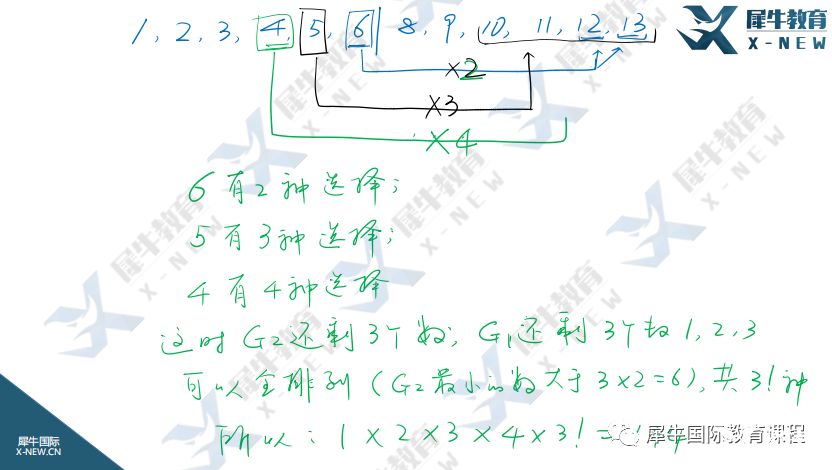 1, 2, 3, 4, 5, 6 8, 9, 10, 11, 12, 13
犀牛教育
X-NEW
×2
×3
×4
6有2种选择;
5有3种选择;
4有4种选择
这时G2还剩3个数, G1还剩3个数1,2,3
可以全排列(G2最小的数大于3×2=6),共3!种
所以: 1×2×3×4×3! =
犀牛国际教育课程
犀牛国际
X-NEW.CN